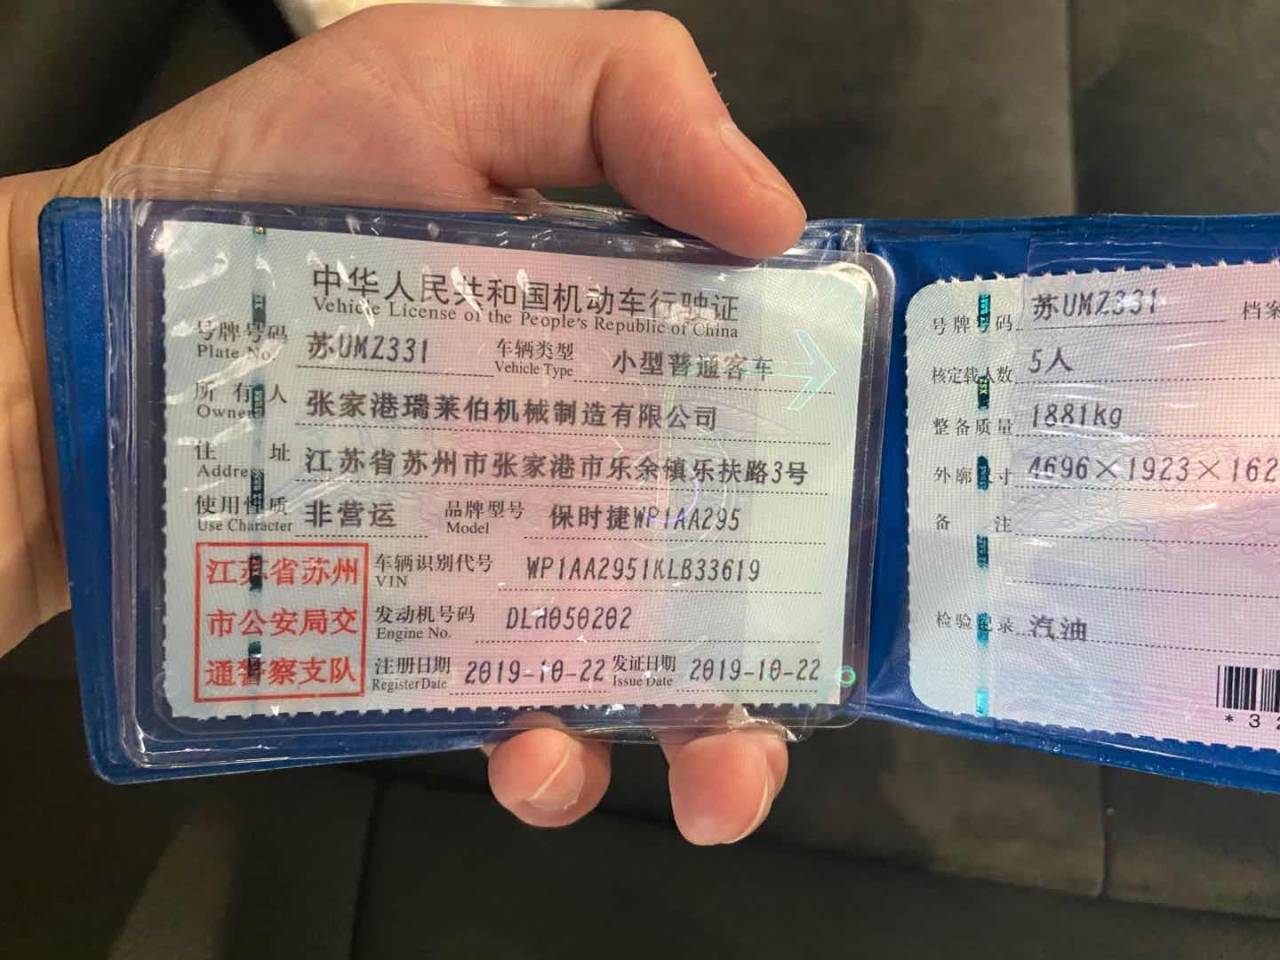 中华人民共和国机动车行驶证
Vehicle License of the People's Republic of China
号牌号码 苏UMZ331 车辆类型 小型普通客车
Plate No. Vehicle Type
所有人 张家港瑞莱伯机械制造有限公司
Owner
住址 江苏省苏州市张家港市乐余镇乐扶路3号
Address
使用性质 非营运 品牌型号 保时捷WP1AA295
Use Character Model
江苏省苏州
市公安局交
通警察支队
车辆识别代号 WP1AA2951KLB33619
VIN
发动机号码 DLH050202
Engine No.
注册日期 2019-10-22 发证日期 2019-10-22
Register Date Issue Date
号牌号码 苏UMZ331 档案
核定载人数 5人
整备质量 1881kg
外廓尺寸 4696×1923×162
备注
检验记录 汽油
*3